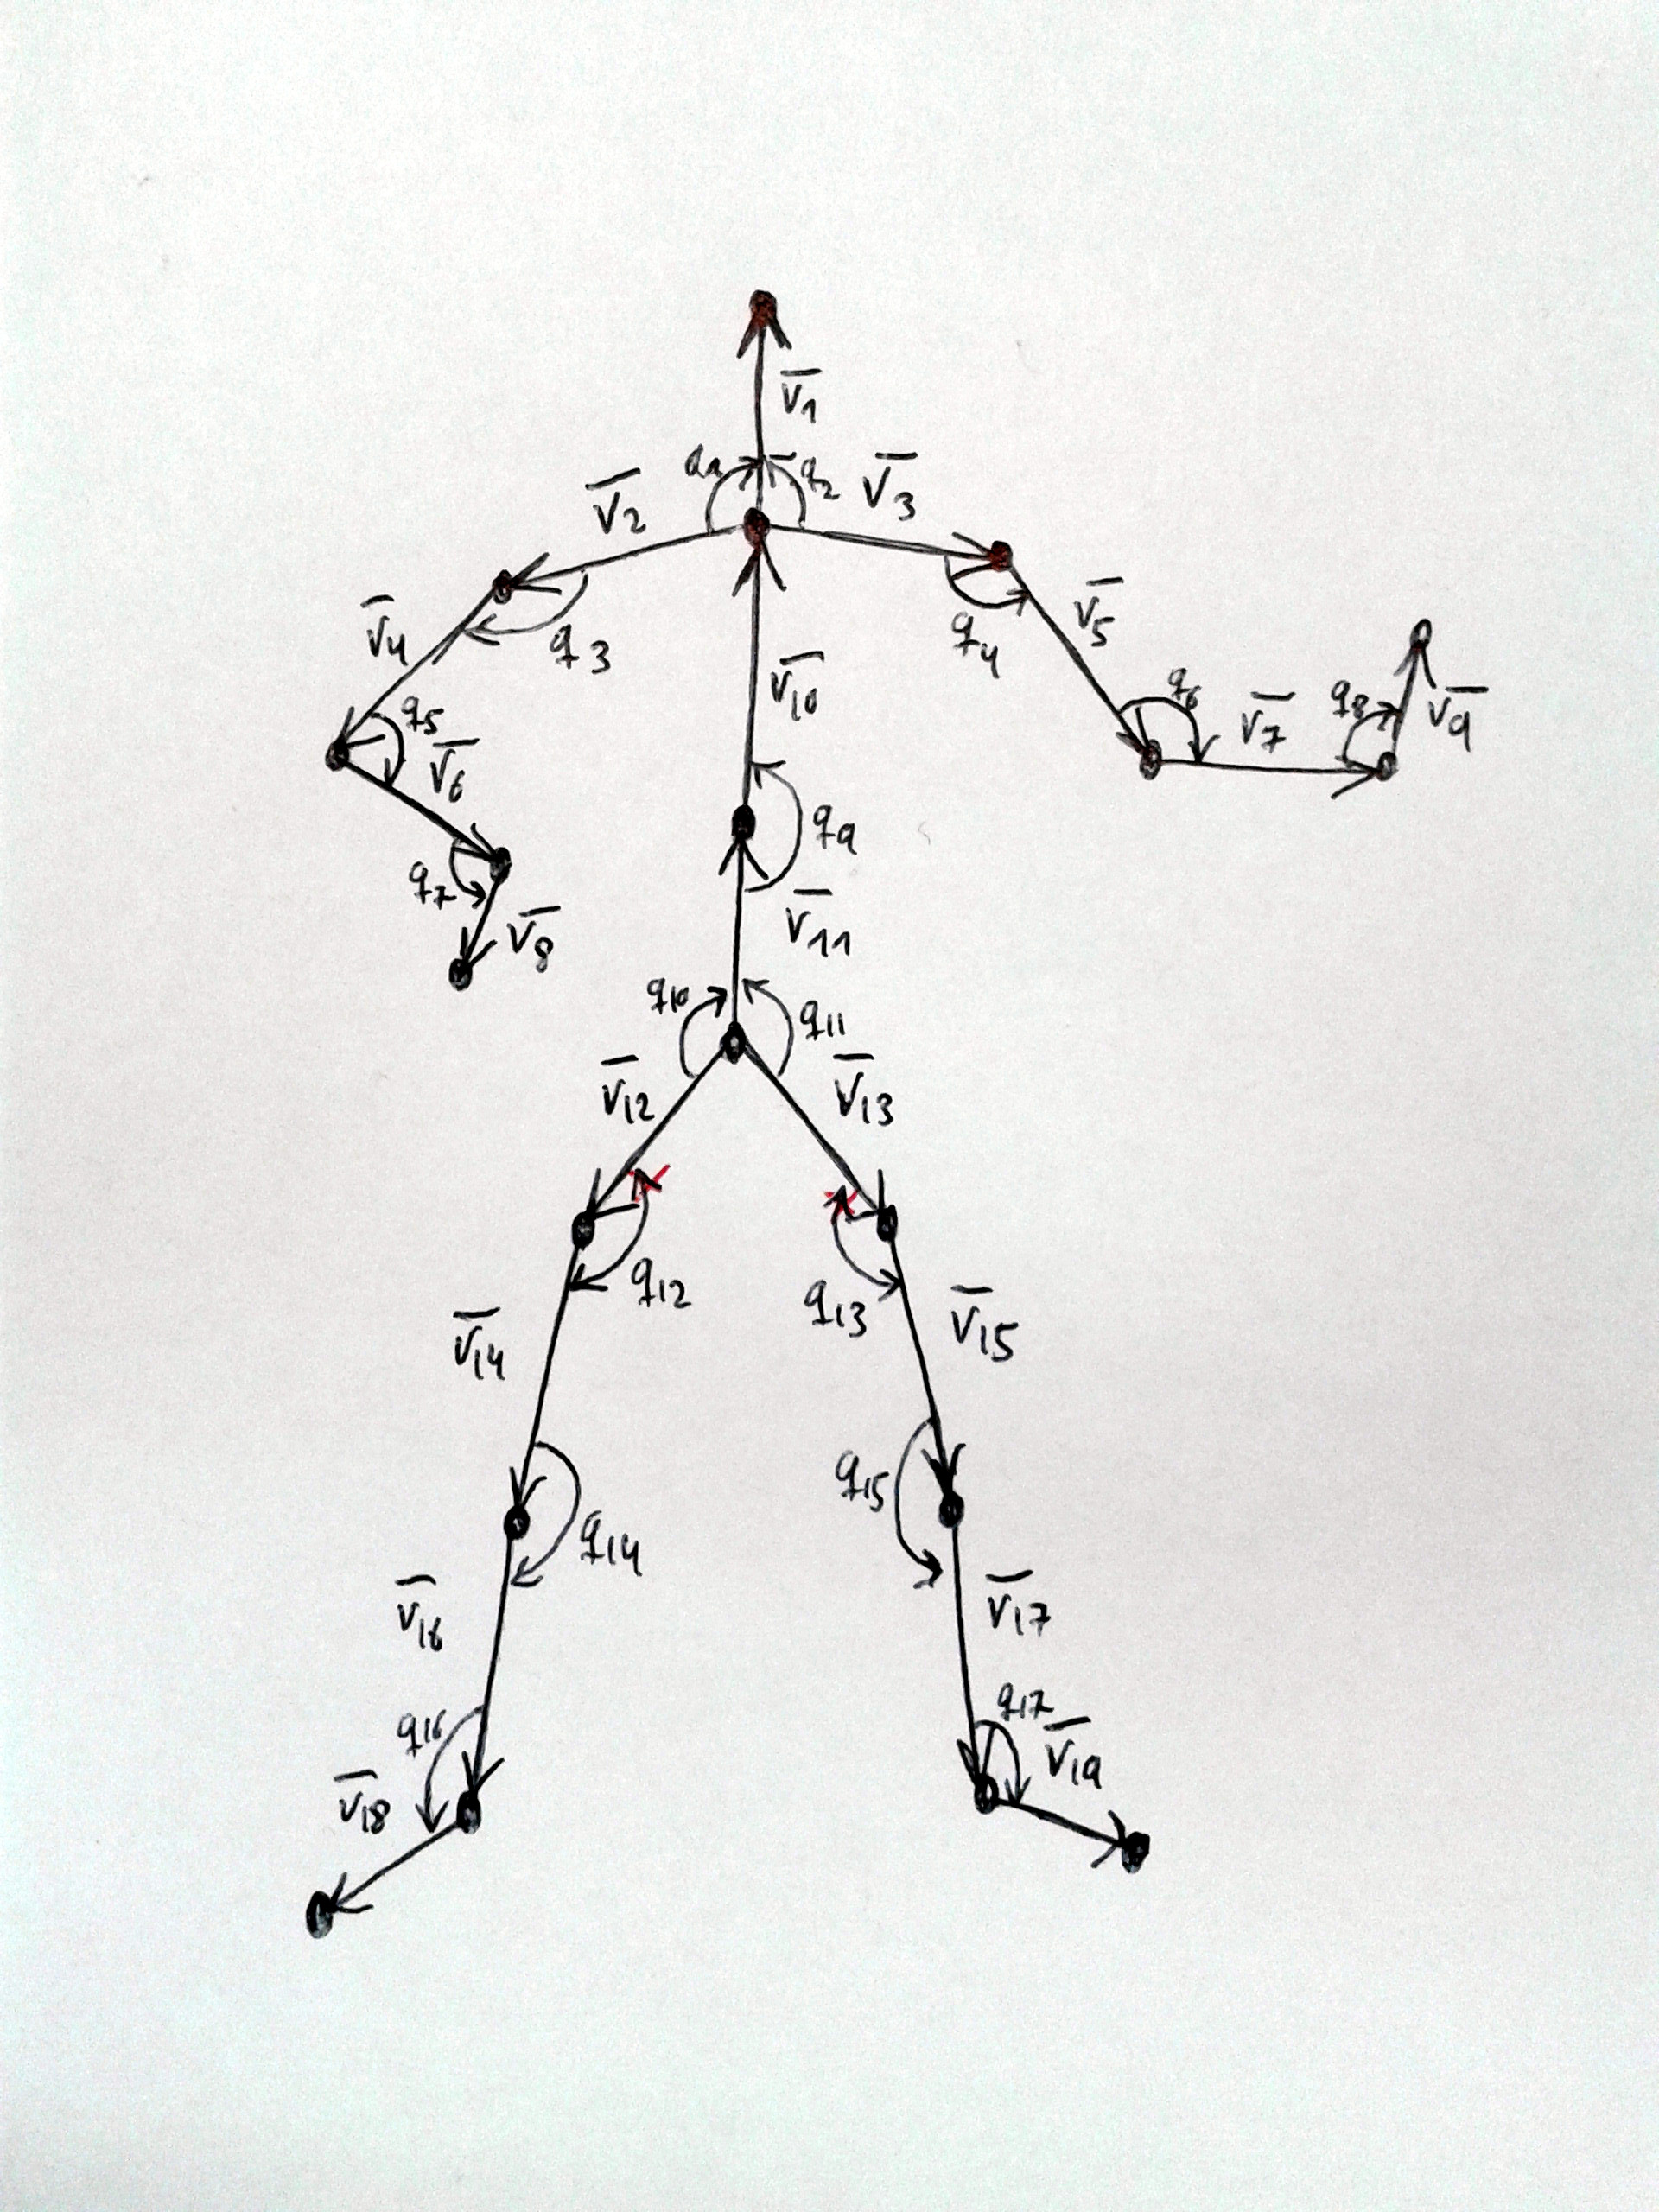 v̅1
q1 q2 v̅3
v̅2
v̅4 q3 q4 v̅5
v̅10
q5 v̅6 q6 v̅7 q8 v̅9
q9
q7 v̅8 v̅11
q10 q11
v̅12 v̅13
q12 q13
v̅14 v̅15
q14 q15
v̅16 v̅17
q16 q17
v̅18 v̅19